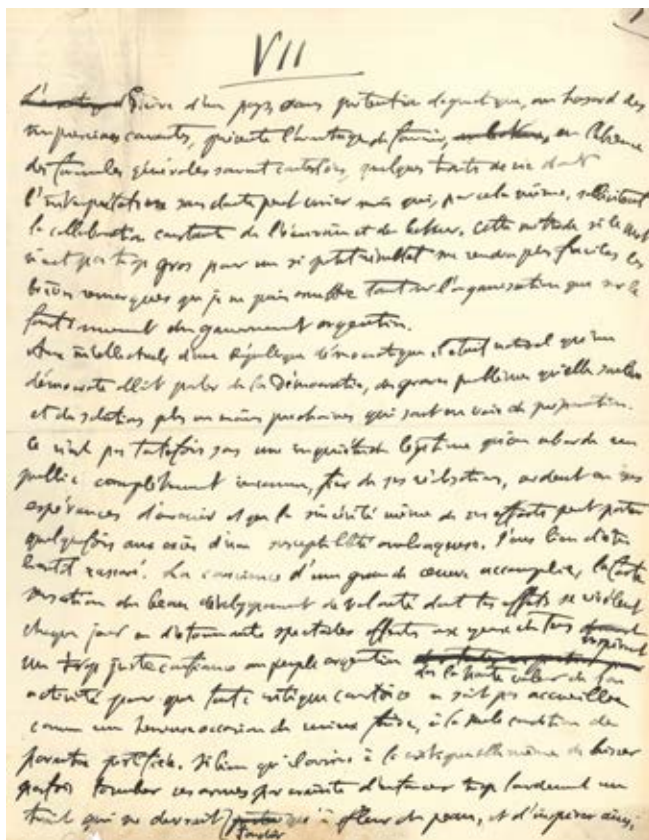 VII
Écrire d'un pays sans prétention dogmatique, au hasard des
impressions courantes, présente l'avantage de fournir, en l'absence
des formules générales savant cautelous, quelques traits de vie dont
l'interprétation sans doute peut varier mais qui, par cela même, sollicitent
la collaboration constante de l'écrivain et du lecteur. Cette méthode si le mot
n'est pas trop gros pour un si petit résultat me rendra plus faciles les
brèves remarques que je ne puis omettre tant sur l'organisation que sur le
fonctionnement du gouvernement argentin.
Aux intellectuels d'une République démocratique, il était naturel qu'un
démocrate allât parler de la Démocratie, des graves problèmes qu'elle soulève
et des solutions plus ou moins prochaines qui sont en voie de préparation.
Ce n'est pas toutefois sans une inquiétude légitime qu'on aborde un
public complètement inconnu, fier de ses réalisations, ardent en ses
espérances d'avenir et que la sincérité même de ses efforts peut porter
quelquefois aux excès d'une susceptibilité ombrageuse. J'eus lieu d'être
bientôt rassuré. La conscience d'une grande œuvre accomplie, la forte
sensation du beau développement de volonté dont les effets se révèlent
chaque jour en d'étonnants spectacles offerts aux yeux de tous inspirent
une trop juste confiance au peuple argentin dans la haute valeur de son
activité pour que toute critique courtoise ne soit pas accueillie
comme une heureuse occasion de mieux faire, à la seule condition de
paraître justifiée. Si bien qu'il arrive à la critique elle-même de laisser
parfois tomber ses armes par crainte d'enfoncer trop lourdement un
trait qui ne devrait toucher qu'à fleur de peau, et d'inspirer ainsi,